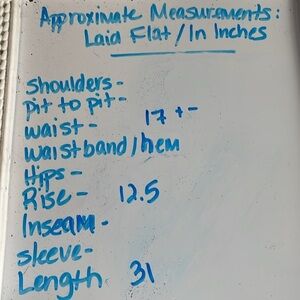 Approximate Measurements:
Laid Flat/In Inches
Shoulders-
Pit to pit-
waist- 17 +-
waistband/hem
Hips-
Rise- 12.5
Inseam-
sleeve-
Length 31